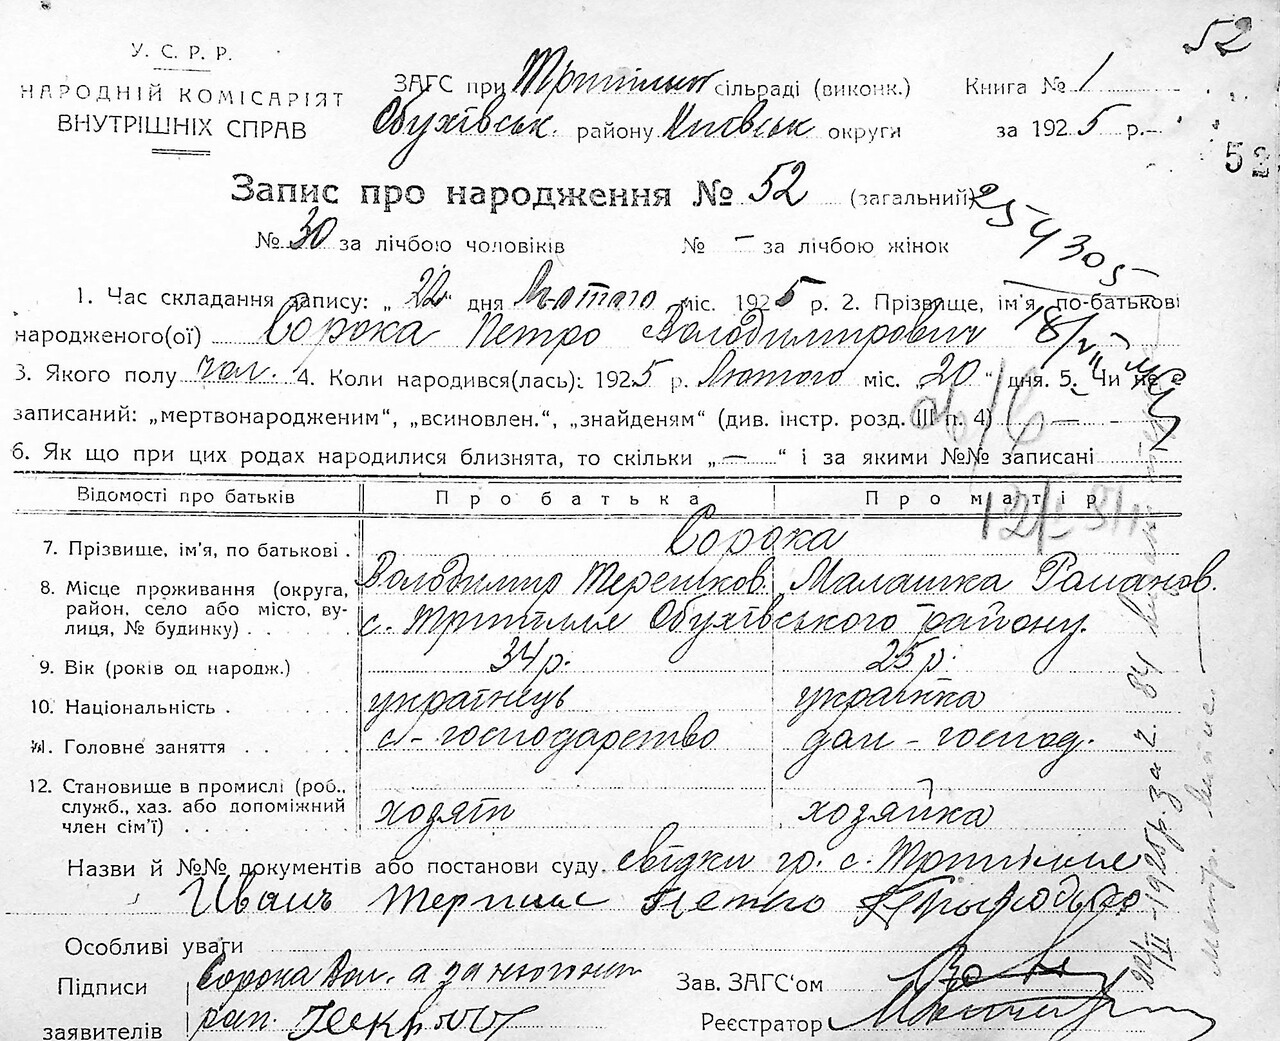 52
У. С. Р. Р.
НАРОДНІЙ КОМІСАРІЯТ
ВНУТРІШНІХ СПРАВ
ЗАГС при Трипільск сільраді (виконк.)
Книга № 1
Обухівськ. району Київськ округи
за 1925 р.–
52
Запис про народження № 52 (загальний)
254305
№ 30 за лічбою чоловіків № – за лічбою жінок
1. Час складання запису: „22“ дня Лютого міс. 1925 р. 2. Прізвище, ім'я, по-батькові
народженого(ої) Сорока Петро Володимирович
18/VII
3. Якого полу чол. 4. Коли народився(лась): 1925 р. Лютого міс. „20“ дня. 5. Чи не є
записаний: „мертвонародженим“, „всиновлен.“, „знайденям“ (див. інстр. розд. III п. 4) —
6. Як що при цих родах народилися близнята, то скільки „—“ і за якими №№ записані
Відомості про батьків Про батька Про матір
7. Прізвище, ім'я, по батькові . Сорока
Володимир Терешков. Малашка Романов.
8. Місце проживання (округа,
район, село або місто, ву-
лиця, № будинку) . . . . .
с. Трипілля Обухівського району.
9. Вік (років од народж.) 34 р. 25 р.
10. Національність . українець українка
11. Головне заняття . . . с-господарство дом-господ.
12. Становище в промислі (роб.,
служб., хаз. або допоміжний
член сім'ї) . . . . . хозяїн хозяйка
Назви й №№ документів або постанови суду. свідки гр. с. Трипілля
Иванъ
Особливі уваги
Підписи
заявителів
Сорока Вол. а за
Зав. ЗАГС'ом
Реєстратор